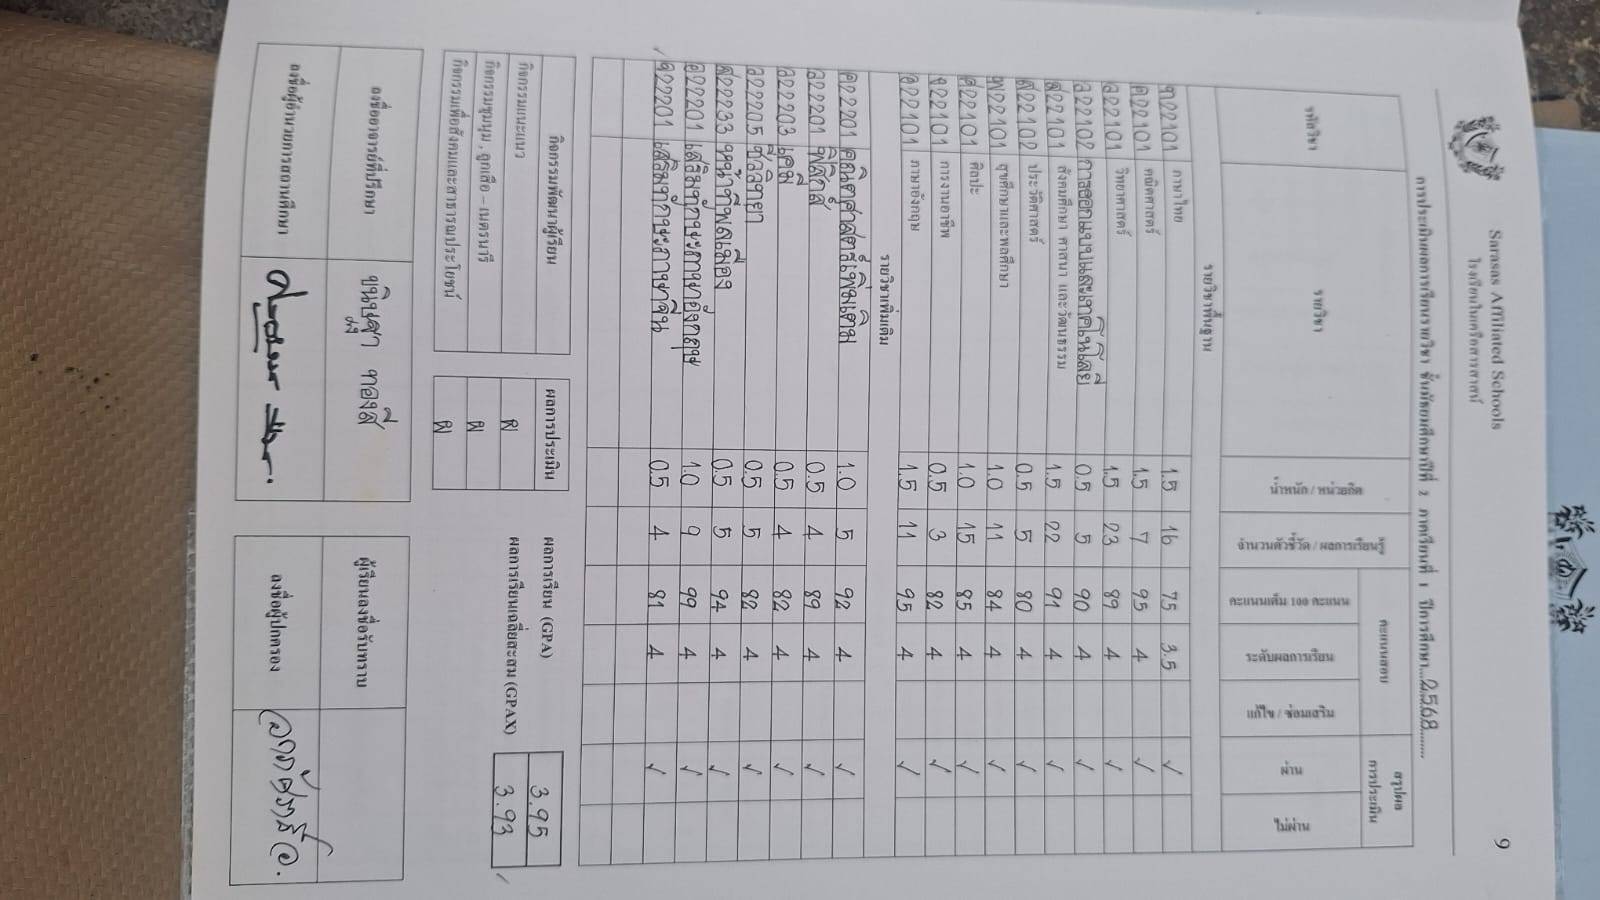 9
Sarasas Affiliated Schools
โรงเรียนในเครือสารสาสน์
การประเมินผลการเรียนรายวิชา ชั้นมัธยมศึกษาปีที่ 2 ภาคเรียนที่ 1 ปีการศึกษา...2568...
รหัสวิชา รายวิชา น้ำหนัก / หน่วยกิต จำนวนตัวชี้วัด / ผลการเรียนรู้ คะแนนสอบ สรุปผลการประเมิน
คะแนนเต็ม 100 คะแนน ระดับผลการเรียน แก้ไข / ซ่อมเสริม ผ่าน ไม่ผ่าน
รายวิชาพื้นฐาน
ท22101 ภาษาไทย 1.5 16 75 3.5 ✓
ค22101 คณิตศาสตร์ 1.5 7 95 4 ✓
ว22101 วิทยาศาสตร์ 1.5 23 89 4 ✓
ว22102 การออกแบบและเทคโนโลยี 0.5 5 90 4 ✓
ส22101 สังคมศึกษา ศาสนา และวัฒนธรรม 1.5 22 91 4 ✓
ส22102 ประวัติศาสตร์ 0.5 5 80 4 ✓
พ22101 สุขศึกษาและพลศึกษา 1.0 11 84 4 ✓
ศ22101 ศิลปะ 1.0 15 85 4 ✓
ง22101 การงานอาชีพ 0.5 3 82 4 ✓
อ22101 ภาษาอังกฤษ 1.5 11 95 4 ✓
รายวิชาเพิ่มเติม
ค22201 คณิตศาสตร์เพิ่มเติม 1.0 5 92 4 ✓
ว22201 ฟิสิกส์ 0.5 4 89 4 ✓
ว22203 เคมี 0.5 4 82 4 ✓
ว22205 ชีววิทยา 0.5 5 82 4 ✓
ส22233 หน้าที่พลเมือง 0.5 5 94 4 ✓
อ22201 เสริมทักษะภาษาอังกฤษ 1.0 9 99 4 ✓
จ22201 เสริมทักษะภาษาจีน 0.5 4 81 4 ✓
กิจกรรมพัฒนาผู้เรียน ผลการประเมิน
กิจกรรมแนะแนว ผ
กิจกรรมชุมนุม , ลูกเสือ – เนตรนารี ผ
กิจกรรมเพื่อสังคมและสาธารณประโยชน์ ผ
ผลการเรียน (GPA) 3.95
ผลการเรียนเฉลี่ยสะสม (GPAX) 3.93
ลงชื่ออาจารย์ที่ปรึกษา
ผู้เรียนลงชื่อรับทราบ
ลงชื่อผู้อำนวยการสถานศึกษา
ลงชื่อผู้ปกครอง